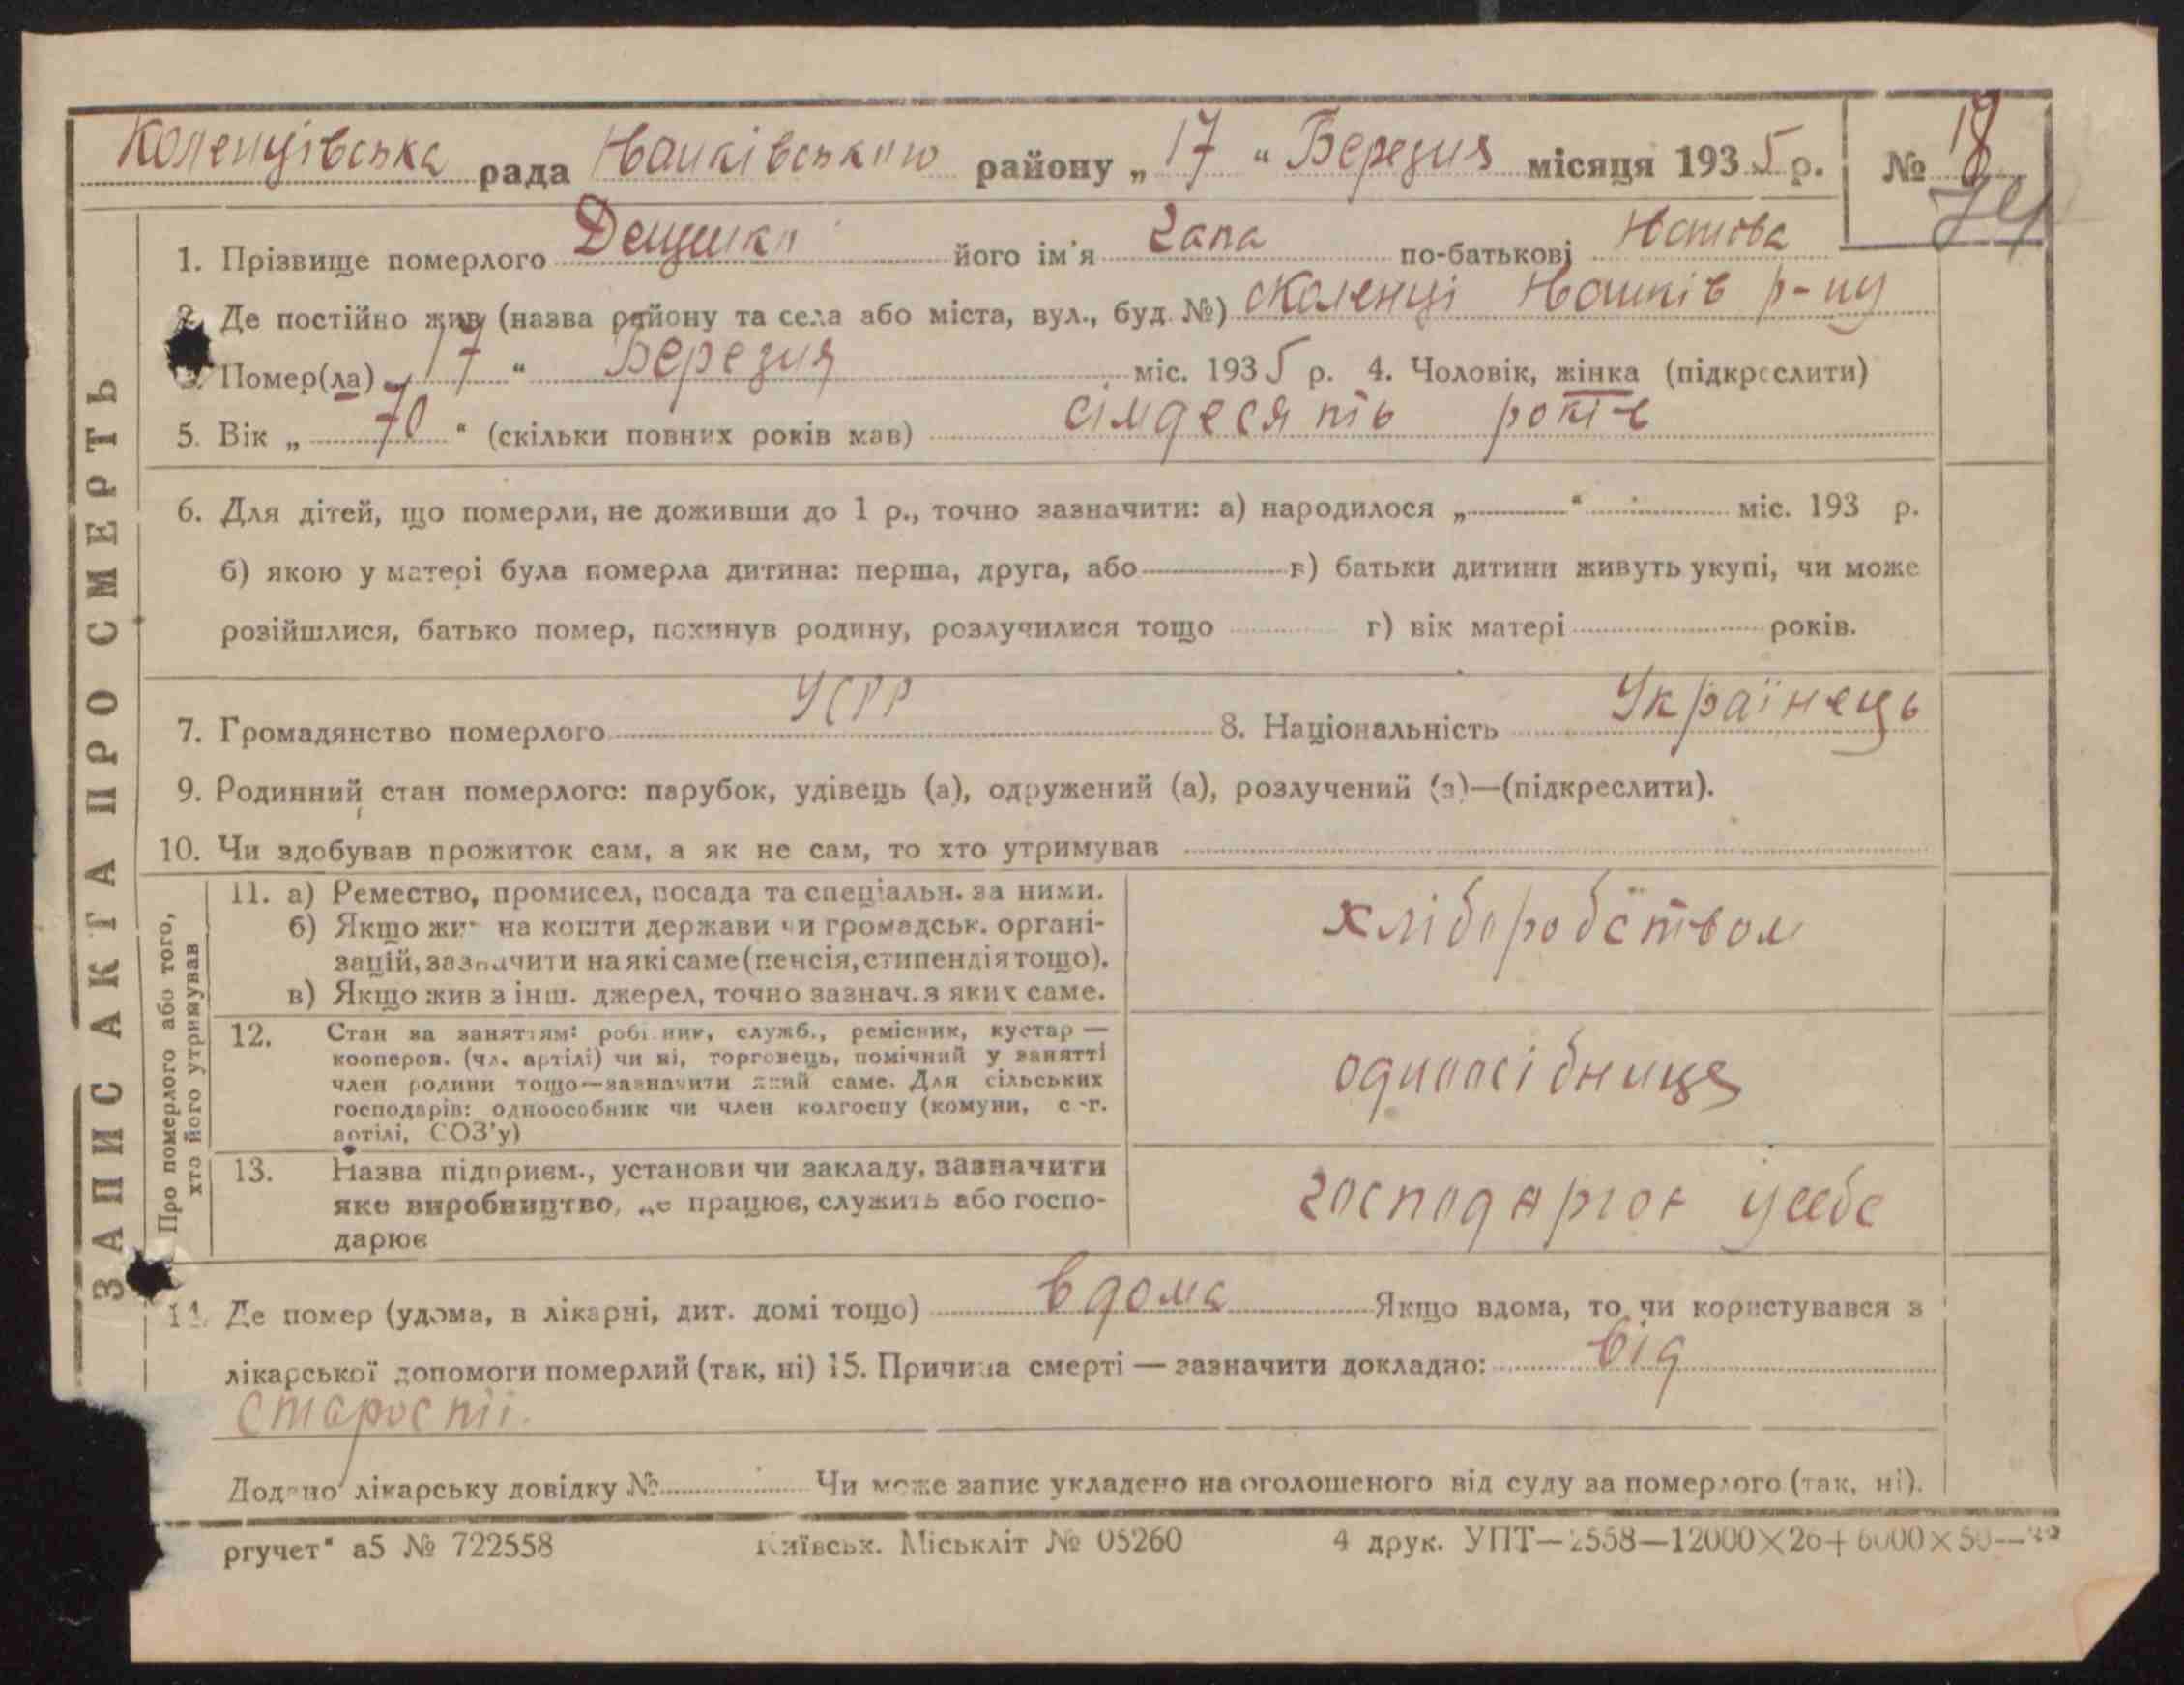 Коленцівська рада Іванківського району „ 17 “ Березня місяця 193 5 р. № 18
74
1. Прізвище померлого його ім'я по-батькові
2. Де постійно жив (назва району та села або міста, вул., буд. №) с Коленці Іванків р-ну
3. Помер(ла) „ 17 “ Березня міс. 193 5 р. 4. Чоловік, жінка (підкреслити)
5. Вік „ 70 “ (скільки повних років мав) сімдесять років
6. Для дітей, що померли, не доживши до 1 р., точно зазначити: а) народилося „ “ міс. 193 р.
б) якою у матері була померла дитина: перша, друга, або в) батьки дитини живуть укупі, чи може
розійшлися, батько помер, покинув родину, розлучилися тощо г) вік матері років.
7. Громадянство померлого УСРР 8. Національність Українець
9. Родинний стан померлого: парубок, удівець (а), одружений (а), розлучений (а)—(підкреслити).
10. Чи здобував прожиток сам, а як не сам, то хто утримував
ЗАПИС АКТА ПРО СМЕРТЬ
Про померлого або того,
хто його утримував
11. а) Ремество, промисел, посада та спеціальн. за ними.
б) Якщо жив на кошти держави чи громадськ. органі-
зацій, зазначити на які саме (пенсія, стипендія тощо).
в) Якщо жив з інш. джерел, точно зазнач. з яких саме.
хліборобством
12. Стан за заняттям: робітник, служб., ремісник, кустар —
кооперов. (чл. артілі) чи ні, торговець, помічний у занятті
член родини тощо—зазначити який саме. Для сільських
господарів: одноособник чи член колгоспу (комуни, с.-г.
артілі, СОЗ'у)
одноосібниця
13. Назва підприєм., установи чи закладу, зазначити
яке виробництво, де працює, служить або госпо-
дарює
господарює усебе
14. Де помер (удома, в лікарні, дит. домі тощо) вдома Якщо вдома, то чи користувався з
лікарської допомоги померлий (так, ні) 15. Причина смерті — зазначити докладно: від
старости.
Додано лікарську довідку № Чи може запис укладено на оголошеного від суду за померлого (так, ні).
ргучет" а5 № 722558 Київськ. Міськліт № 05260 4 друк. УПТ—2558—12000×26+6000×50—